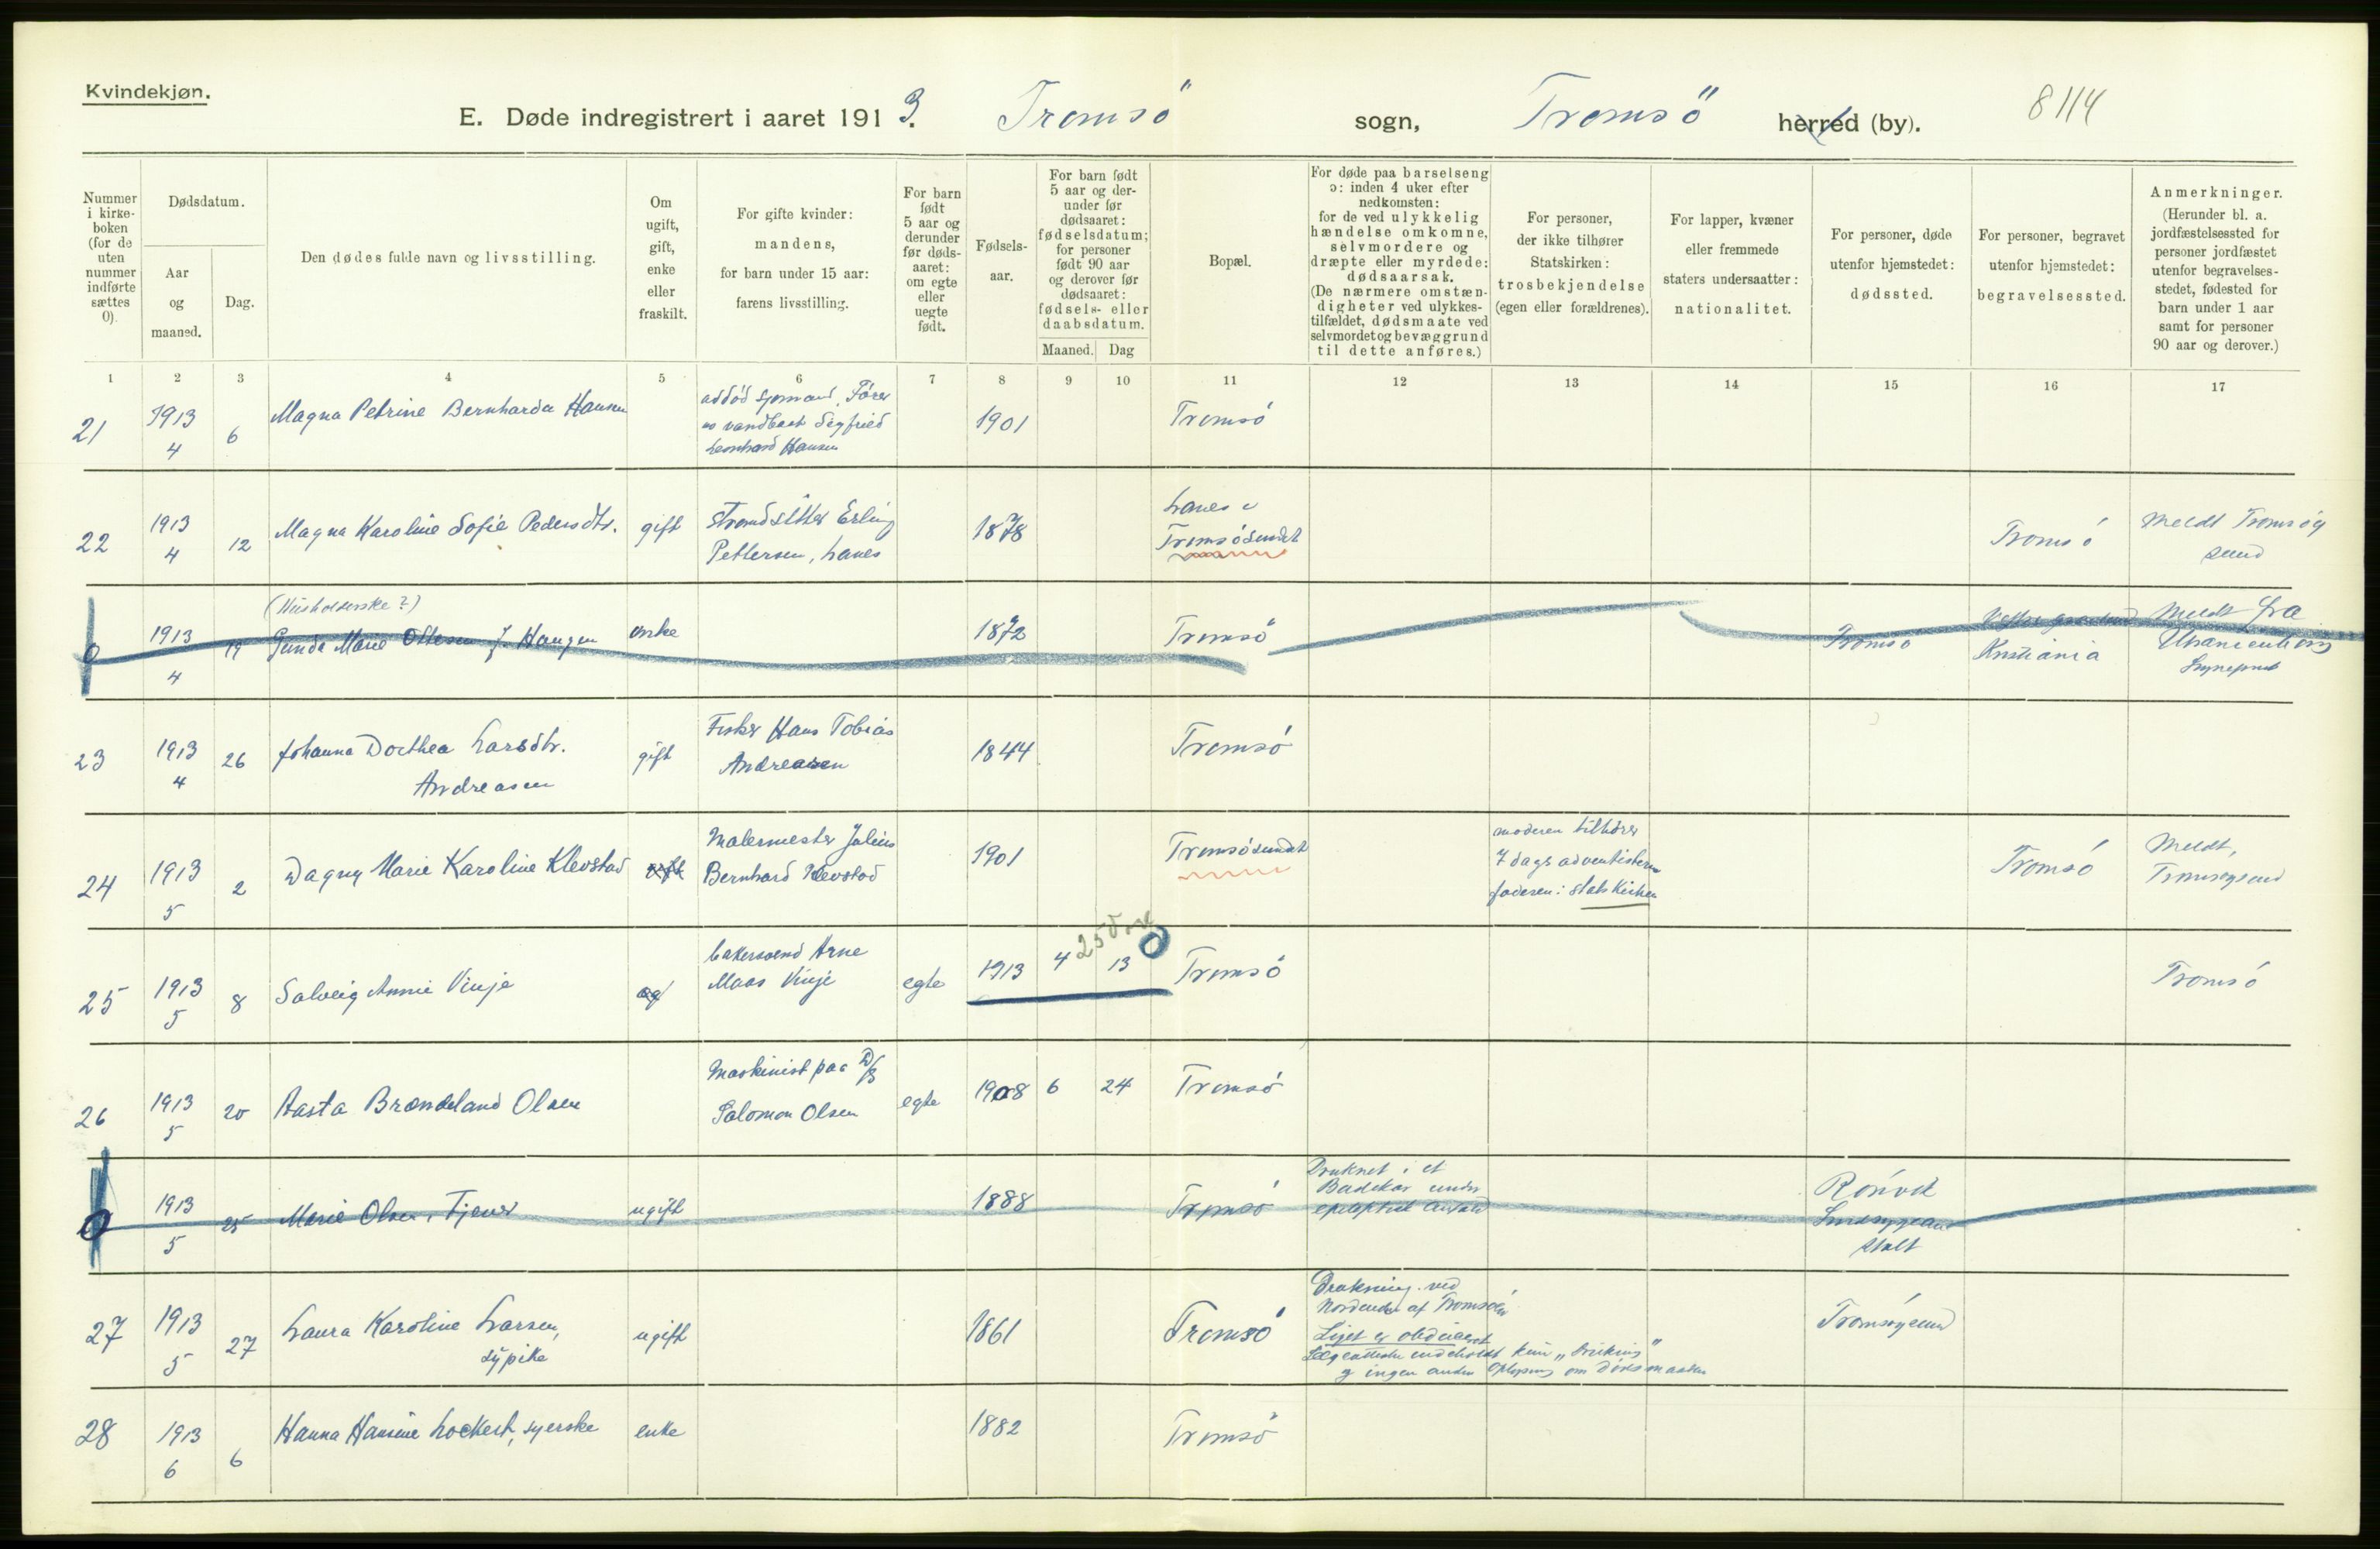 Kvindekjøn.
E. Døde indregistrert i aaret 1913. Tromsö sogn, Tromsö herred (by).
8114
Nummer i kirke-boken (for de uten nummer indførte sættes 0).
Dødsdatum.
Aar og maaned.
Dag.
Den dødes fulde navn og livsstilling.
Om ugift, gift, enke eller fraskilt.
For gifte kvinder: mandens, for barn under 15 aar: farens livsstilling.
For barn født 5 aar og derunder før døds-aaret: om egte eller uegte født.
Fødsels-aar.
For barn født 5 aar og der-under før dødsaaret: fødselsdatum; for personer født 90 aar og derover før dødsaaret: fødsels- eller daabsdatum.
Maaned. Dag
Bopæl.
For døde paa barselseng ɔ: inden 4 uker efter nedkomsten: for de ved ulykkelig hændelse omkomne, selvmordere og dræpte eller myrdede: dødsaarsak. (De nærmere omstæn-digheter ved ulykkes-tilfældet, dødsmaate ved selvmordet og bevæggrund til dette anføres.)
For personer, der ikke tilhører Statskirken: trosbekjendelse (egen eller forældrenes).
For lapper, kvæner eller fremmede staters undersaatter: nationalitet.
For personer, døde utenfor hjemstedet: dødssted.
For personer, begravet utenfor hjemstedet: begravelsessted.
Anmerkninger. (Herunder bl. a. jordfæstelsessted for personer jordfæstet utenfor begravelses-stedet, fødested for barn under 1 aar samt for personer 90 aar og derover.)
1 2 3 4 5 6 7 8 9 10 11 12 13 14 15 16 17
21 1913 4 6 Magna Petrine Bernharda Hansen
Fører
vandbaat Sigfried
Leonhard Hansen
1901 Tromsö
22 1913 4 12 Magna Karoline Sofie Pedersdtr. gift
Strandsitter Erling
Pettersen, Lanes
1878
Lanes i
Tromsösundet
Tromsö
Meldt Tromsøy
sund
0 1913 4 19
(Husholderske?)
Gunda Marie Ottesen f. Haugen
enke 1872 Tromsö
Tromsö
Kristiania
Meldt fra
Uranienborg
23 1913 4 26 Johanna Dorthea Larsdtr.
Andreasen
gift
Fisker Hans Tobias
Andreasen
1844 Tromsö
24 1913 5 2 Dagny Marie Karoline Klevstad
Malermester Julius
Bernhard Klevstad
1901 Tromsösundet
moderen tilhører
7 dags adventisterne
faderen: statskirken
Tromsö
Meldt,
Tromsøysund
25 1913 5 8 Solveig Annie Vinje
bakersvend Arne
Maas Vinje
egte 1913 4 13 Tromsö
Tromsö
26 1913 5 20 Aasta Brændeland Olsen
Maskinist paa D/S
Salomon Olsen
egte 1908 6 24 Tromsö
0 1913 5 25 Marie Olsen, Tjener ugift 1888 Tromsö
Druknet i et
Badekar under
epileptisk anfald
Rönvik
Sindssygean
stalt
27 1913 5 27 Laura Karoline Larsen,
sypike
ugift 1861 Tromsö
Drukning ved
Nordenden af Tromsøen
Liget er obduceret
kun „drukning"
g ingen anden Oplysning om Dødsmaaten
Tromsøysund
28 1913 6 6 Hanna Hansine Lockert, syerske enke 1882 Tromsö